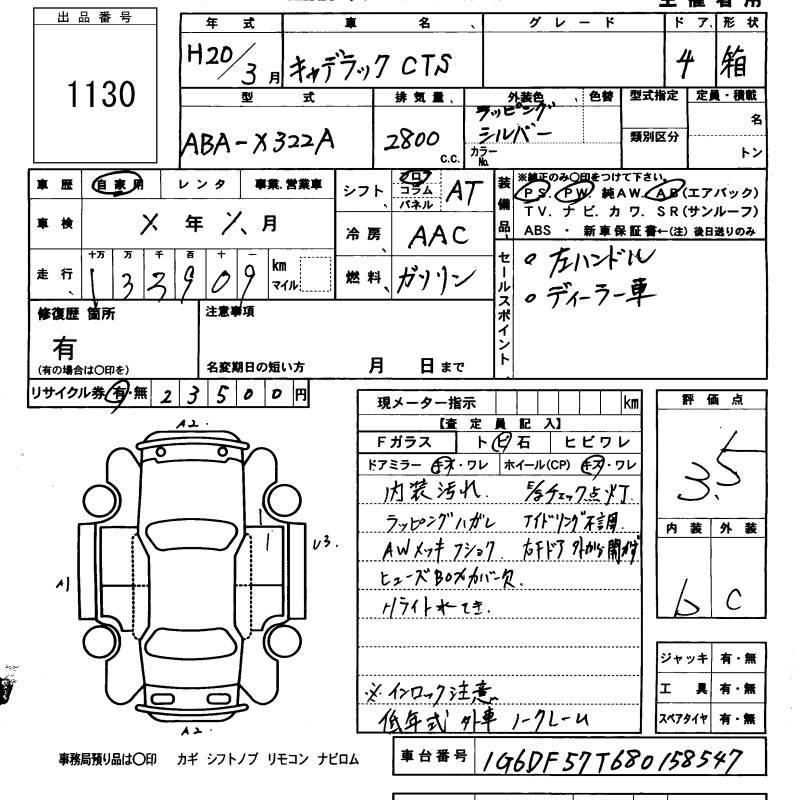 出品番号
1130
年式 車名 グレード ドア 形状
H20/3月 キャデラック CTS 4 箱
型式 排気量 外装色 色替 型式指定 定員・積載
ABA-X322A 2800 c.c. ラッピング シルバー カラーNo. 類別区分 名 トン
車歴 自家用 レンタ 事業、営業車 シフト フロア コラム パネル AT
車検 X年 X月 冷房 AAC
走行 十万 万 千 百 十 一 km マイル 燃料 ガソリン
1 3 3 9 0 9
装備品 ※純正のみ〇印をつけて下さい。
PS. PW. 純AW. AB(エアバック)
TV. ナビ. カワ. SR(サンルーフ)
ABS ・ 新車保証書←(注) 後日送りのみ
セールスポイント
○ 左ハンドル
○ ディーラー車
修復歴 箇所 注意事項
有
(有の場合は〇印を) 名変期日の短い方 月 日まで
リサイクル券 有・無 2 3 5 0 0 円
現メーター指示 km
【査定員記入】
Fガラス トビ石 ヒビワレ
ドアミラー キズ・ワレ ホイール(CP) キズ・ワレ
内装汚れ. E/Gチェック点灯
ラッピングハガレ アイドリング不調.
AWメッキフショク 右Fドア外から開かず
ヒューズBOXカバー欠.
Hライト水てき.
※インロック注意
低年式 外車 ノークレーム
評価点
3.5
内装 外装
b C
A2
A1
U3.
A2
ジャッキ 有・無
工具 有・無
スペアタイヤ 有・無
事務局預り品は〇印 カギ シフトノブ リモコン ナビロム
車台番号 1G6DF57T680158547